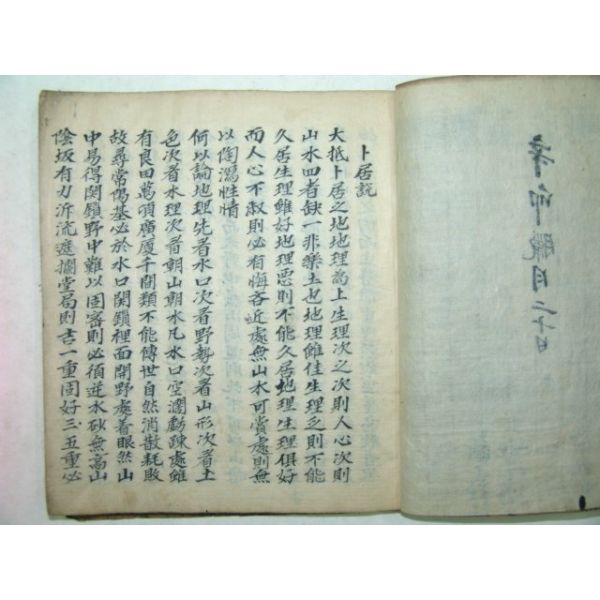 辛卯臘月二十日
卜居說
大抵卜居之地地理為上生理次之次則人心次則
山水四者缺一非樂土也地理雖佳生理乏則不能
久居生理雖好地理惡則不能久居地理生理俱好
而人心不淑則必有悔吝近處無山水可賞處則無
以陶瀉性情
何以論地理先看水口次看野勢次看山形次看土
色次看水理次看朝山朝水凡水口空濶虧疎處雖
有良田萬頃廣厦千間類不能傳世自然消散耗敗
故尋常陽基必於水口関鎖裡面開野處着眼然山
中易得関鎖野中難以固審則必須逆水砂無高山
陰坂有力泝流遮攔堂局則吉一重固好三五重必